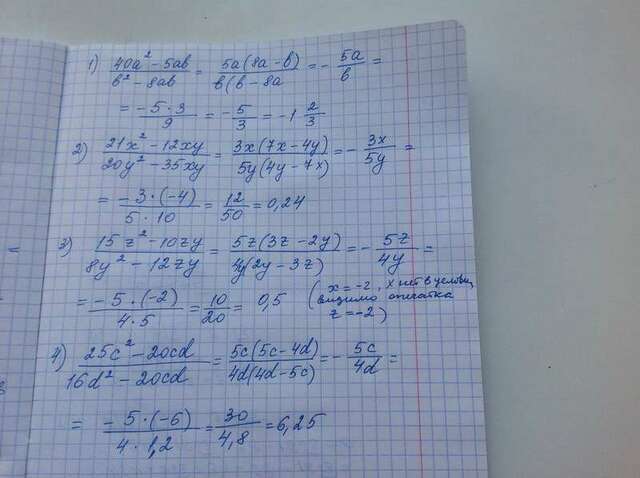 1) (40a² - 5ab)/(b² - 8ab) = 5a(8a - b)/b(b - 8a = - 5a/b =
= (-5 · 3)/9 = - 5/3 = -1 2/3
2) (21x² - 12xy)/(20y² - 35xy) = 3x(7x - 4y)/5y(4y - 7x) = - 3x/5y =
= (-3 · (-4))/(5 · 10) = 12/50 = 0,24
3) (15z² - 10zy)/(8y² - 12zy) = 5z(3z - 2y)/4y(2y - 3z) = - 5z/4y =
= (-5 · (-2))/(4 · 5) = 10/20 = 0,5 (x = -2, x нет в услови
видимо опечатка
z = -2)
4) (25c² - 20cd)/(16d² - 20cd) = 5c(5c - 4d)/4d(4d - 5c) = - 5c/4d =
= (-5 · (-6))/(4 · 1,2) = 30/4,8 = 6,25